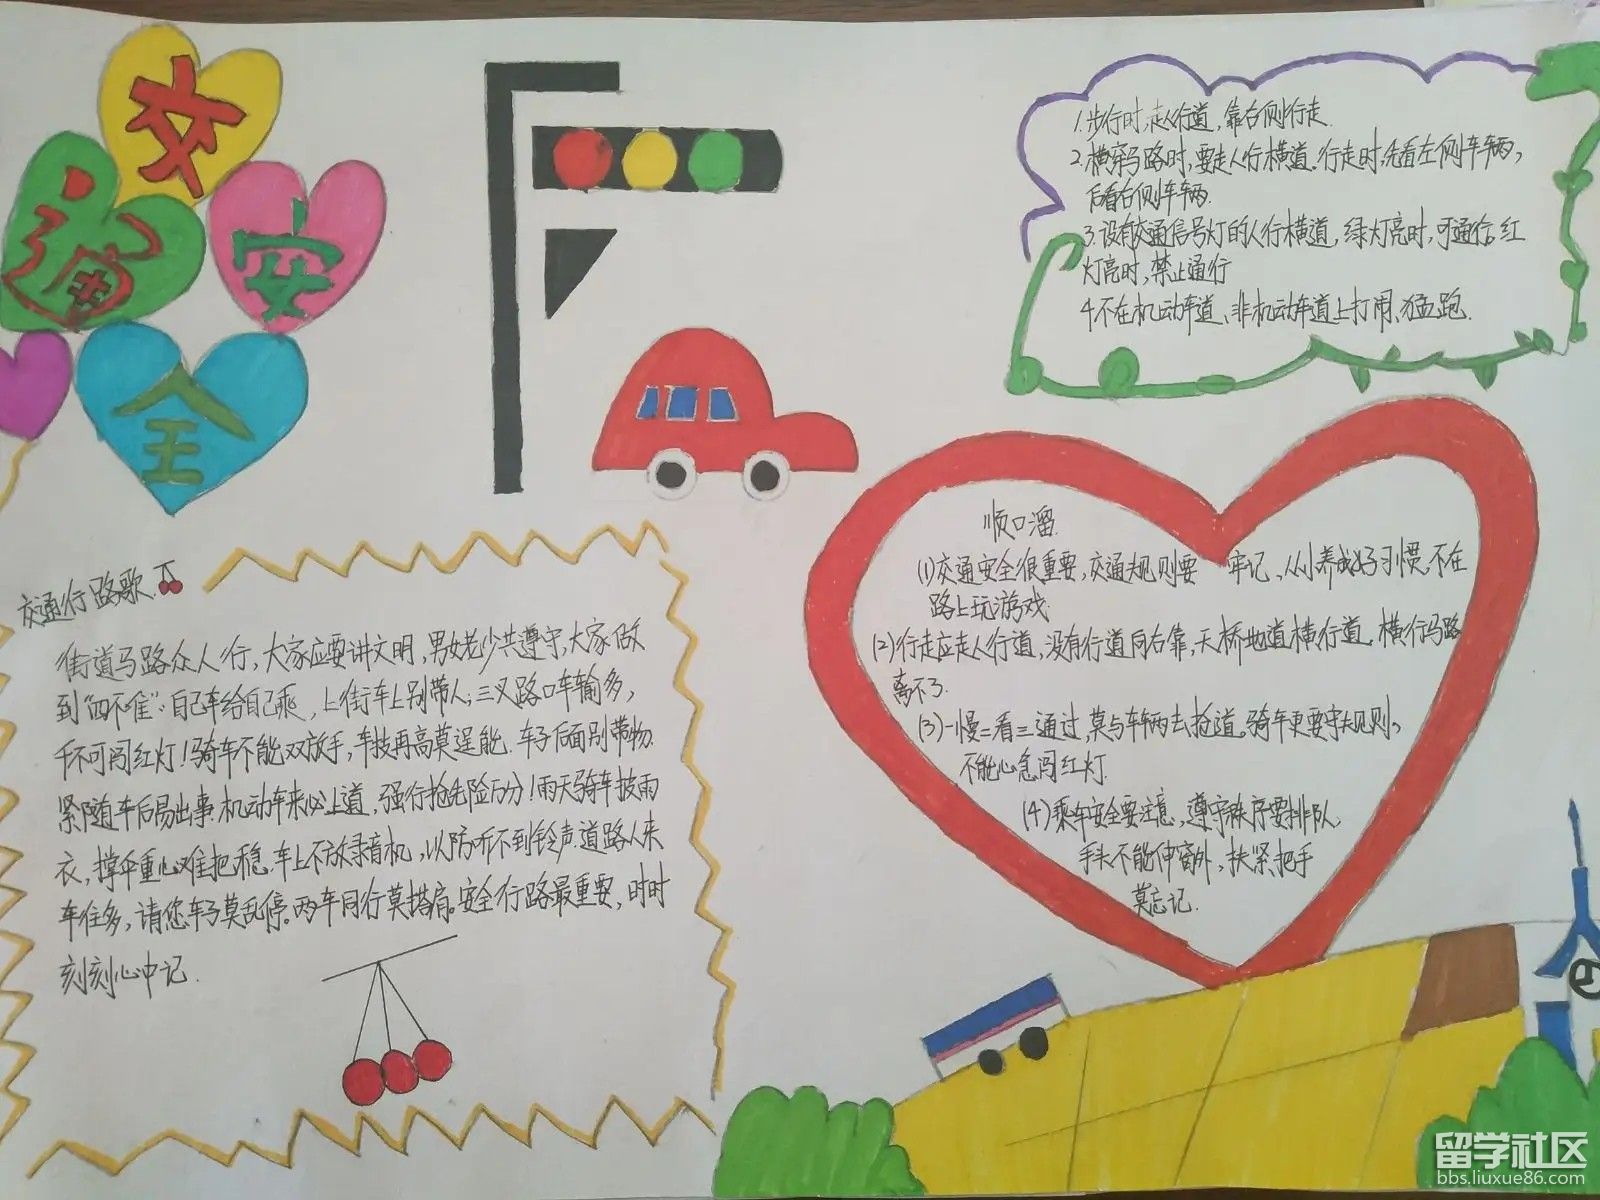 交
通
安
全
1.步行时,走人行道,靠右侧行走.
2.横穿马路时,要走人行横道.行走时,先看左侧车辆,
后看右侧车辆.
3.设有交通信号灯的人行横道,绿灯亮时,可通行,红
灯亮时,禁止通行
4不在机动车道、非机动车道上打闹、猛跑.
顺口溜
(1)交通安全很重要,交通规则要 牢记、从小养成好习惯,不在
路上玩游戏.
(2)行走应走人行道,没有行道向右靠,天桥地道横行道,横行马路
离不了.
(3)一慢二看三通过,莫与车辆去抢道.骑车更要守规则,
不能心急闯红灯.
(4)乘车安全要注意,遵守秩序要排队
手头不能伸窗外,扶紧把手
莫忘记.
交通行路歌
街道马路众人行,大家应要讲文明,男女老少共遵守,大家做
到"四不准":自己车给自己乘,上街车上别带人;三叉路口车输多,
千不可闯红灯!骑车不能双放手,车技再高莫逞能.车子后面别带物.
紧随车后易出事.机动车来必上道,强行抢先险万分!雨天骑车披雨
衣,撑伞重心难把稳.车上不放录音机,以防听不到铃声.道路人来
车往多,请您车子莫乱停。两车同行莫搭肩。安全行路最重要,时时
刻刻心中记.
留学社区
bbs.liuxue86.com